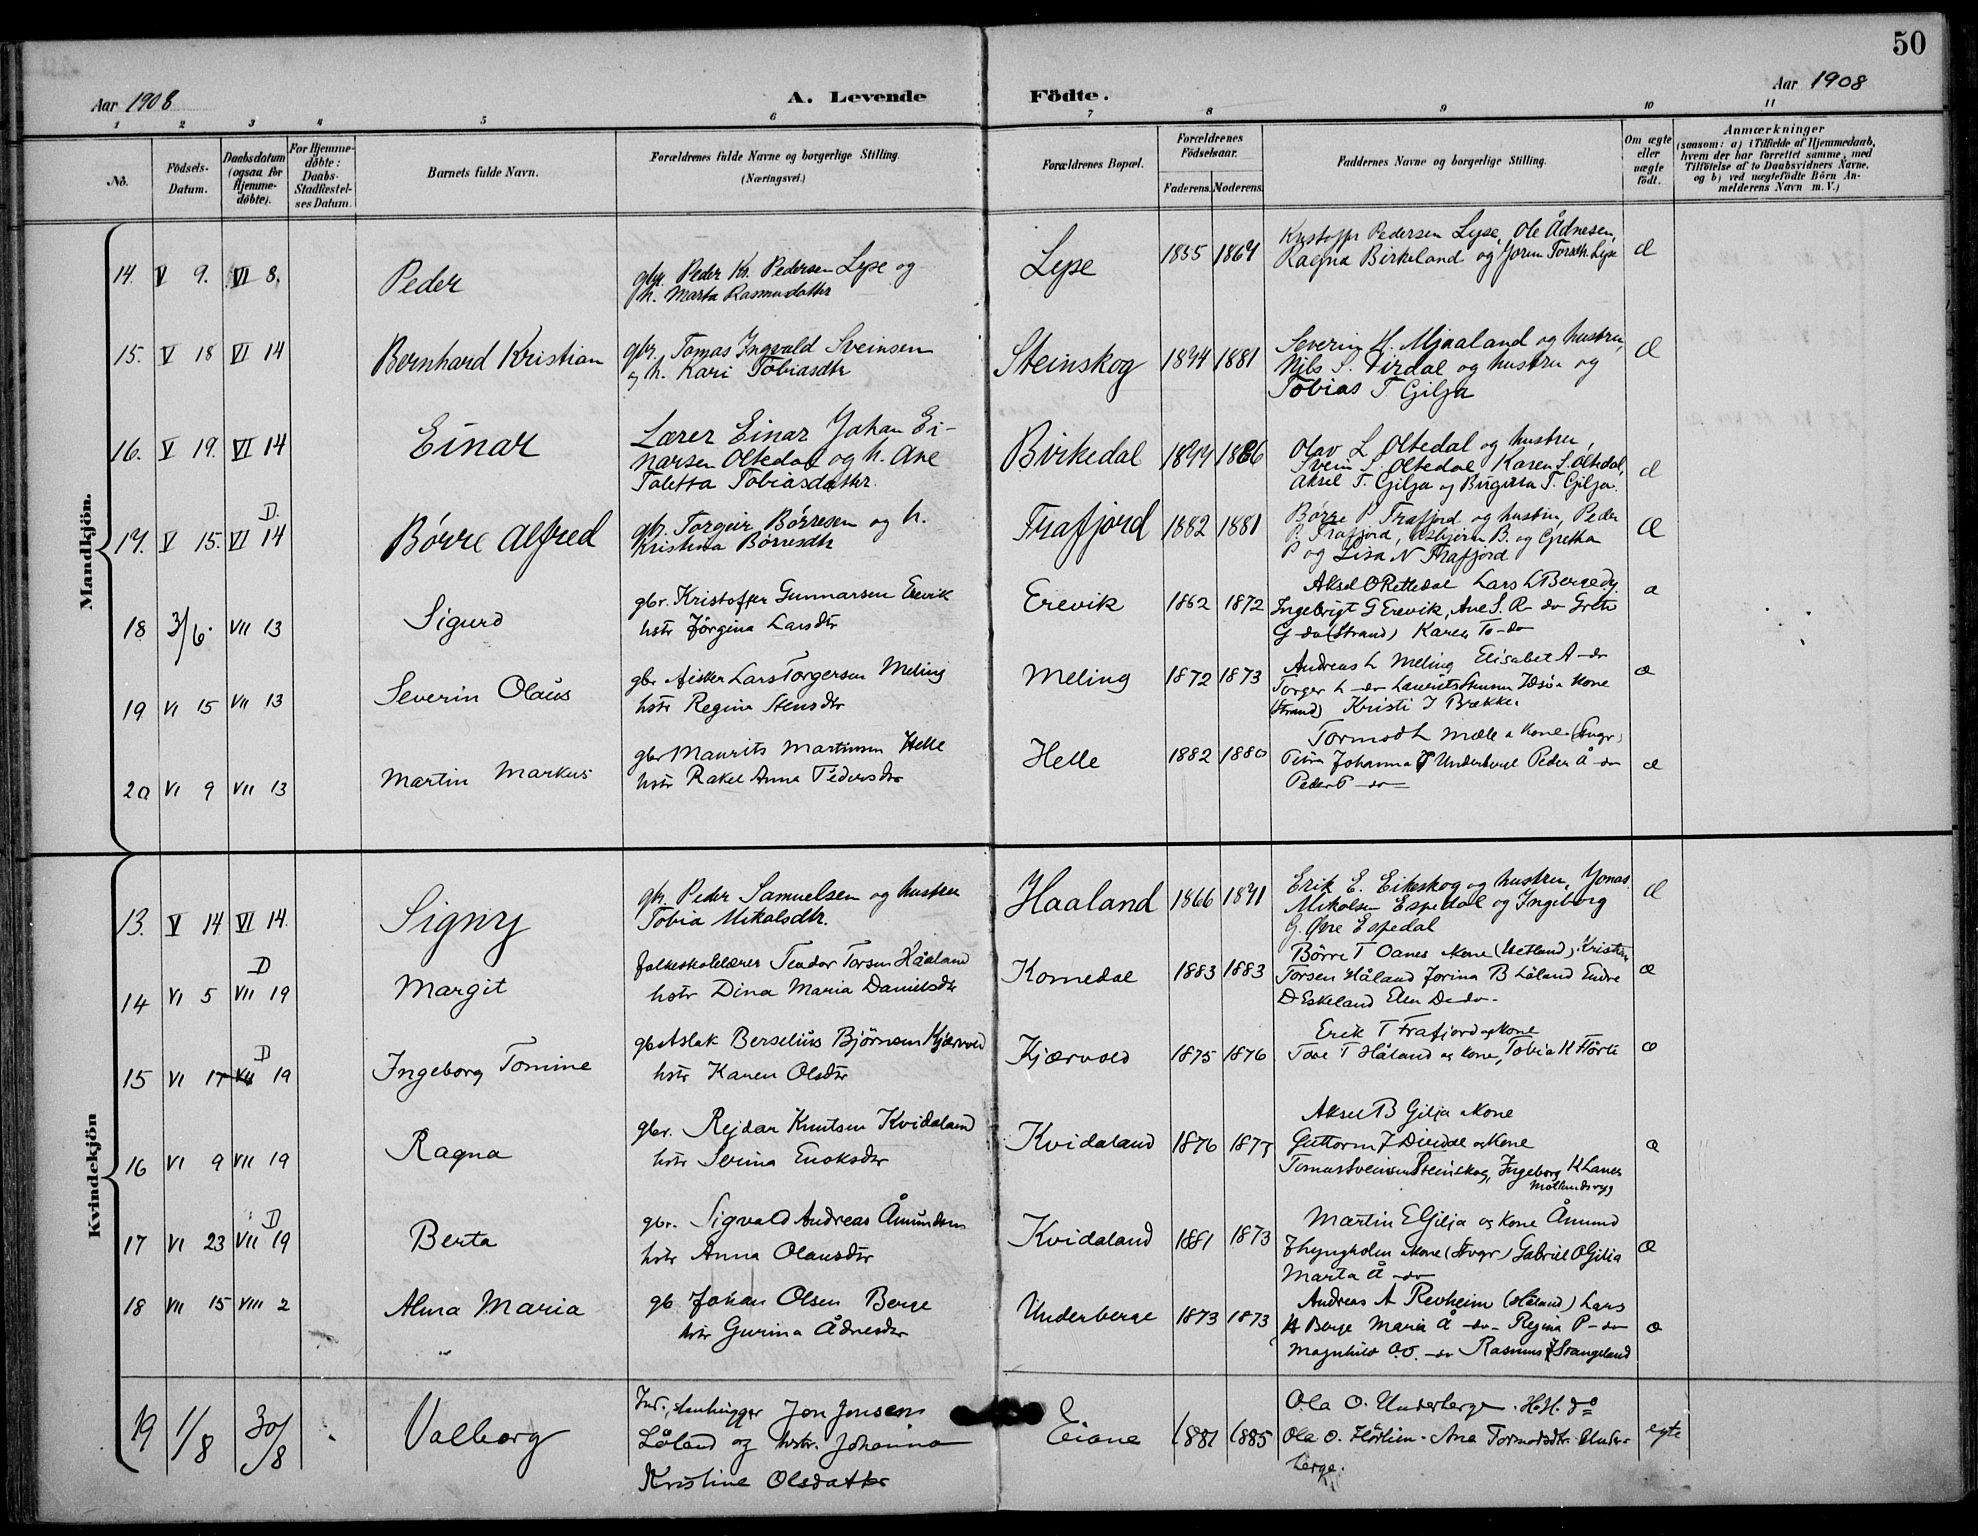 50
Aar 1908
A. Levende Födte.
Aar 1908
1 2 3 4 5 6 7 8 9 10 11
No.
Födsels-Datum.
Daabsdatum (ogsaa for Hjemmedöbte).
For Hjemmedöbte: Daabs-Stadfæstelses Datum.
Barnets fulde Navn.
Forældrenes fulde Navne og borgerlige Stilling. (Næringsvei.)
Forældrenes Bopæl.
Forældrenes Födselsaar.
Faderens. Moderens.
Faddernes Navne og borgerlige Stilling.
Om ægte eller uægte födt.
Anmærkninger
(saasom: a) i Tilfælde af Hjemmedaab, hvem der har forrettet samme, med Tilföielse af to Daabsvidners Navne. og b) ved uægtefödte Börn Anmelderens Navn m. V.)
Mandkjön.
14. V 9. VI 8. Peder
gbr. Peder Kr. Pedersen Lyse og
h. Marta Rasmusdatter
Lyse 1855 1867
Kristoffer Pedersen Lyse, Ole Ådnesen,
Ragna Birkeland og Joren Lyse
æ
15. V 18 VI 14 Bernhard Kristian
gbr. Tomas Ingvald Sveinsen
og h. Kari Tobiasdtr
Steinskog 1874 1881
Severin H. Mjaaland og hustru,
Nils S. Dirdal og hustru og
Tobias T. Gilja
æ
16. V 19. VI 14 Einar
Lærer Einar Johan Ei-
narsen Oltedal og h. Ane
Taletta Tobiasdatter.
Birkedal 1877 1886
Olav L Oltedal og hustru,
Svein S. Oltedal, Karen S. Oltedal,
Aksel T. Gilja og Birgitta T. Gilja.
æ
17. V 15. VI D. 14 Børre Alfred
gbr. Torgeir Børresen og h.
Kristina Børresdtr
Frafjord 1882 1881
Børre P Frafjord og hustru, Peder
P. Frafjord, Asbjørn B. og Gretha
P og Lisa N Frafjord
æ
18 3/6. VII 13 Sigurd
gbr. Kristoffer Gunnarsen Erevik
hstr Jørgina Larsdtr
Erevik 1862 1872
Aksel O Rettedal Lars L Berge dy.
Ingebrigt G Erevik, Ane S. R- do Grete
G do (Strand) Karen To- do
æ
19 VI 15 VII 13 Severin Olaus
gbr Fisker Lars Torgersen Meling
hstr Regine Stensdtr
Meling 1872 1873
Andreas L Meling Elisabet A - do
Torger L - do Laurits Idsø a Kone
(Strand) Kristi J Brekke.
æ
20 VI 9 VII 13 Martin Markus
gbr Maurits Martinsen Helle
hstr Rakel Anna Pedersdtr
Helle 1882 1880
Tormod L Mæle a Kone (Stvgr)
Petra Johanna P Underberge Peder Å - do
Peder P - do
æ
Kvindekjön
13. V 14 VI 14. Signy
gbr. Peder Samuelsen og hustru
Tobia Mikalsdtr.
Haaland 1866 1871
Erik E. Eikeskog og hustru, Jonas
Mikalsen Espedal og Ingeborg
G. Øvre Espedal
æ
14 VI 5 VII D 19 Margit
folkeskolelærer Teodor Torsen Håaland
hstr Dina Maria Danielsdtr
Komedal 1883 1883
Børre T Oanes a Kone (Uetland), Kristen
Torsen Håland Jorina B Løland Endre
D Eskeland Elen D- do-
æ
15 VI 17 VII D 19 Ingeborg Tomine
gbr Aslak Berselius Bjørnsen Kjærvold
hstr Karen Olsdtr
Kjærvold 1875 1876
Erik T Frafjord og Kone
Tore T Håland og Kone, Tobia
æ
16 VI 9 VII 19 Ragna
gbr. Rejdar Knutsen Kvidaland
hstr Serina Enoksdtr
Kvidaland 1876 1877
Aksel B Gilja a Kone
Guttorm J Dirdal a Kone
Tomas Sveinsen Steinskog, Ingeborg K Lanes
Møllandsryg
æ
17 VI 23 VII D 19 Berta
gbr. Sigvald Andreas Åmundsen
hstr Anna Olausdtr
Kvidaland 1881 1873
Martin E Gilja og Kone Åmund
a Kone (Stvgr) Gabriel O Gilja
Marta Å - do
æ
18 VII 15 VIII 2 Alma Maria
gb Johan Olsen Berge
hstr Gurina Ådnesdtr
Underberge 1873 1873
Andreas A Revheim (Håland) Lars
H Berge Maria Å - do - Regina P - do
Magnhild O.O. - do Rasmus J Stangeland
æ
19 1/8 30/8 Valborg
Ind., stenhugger Jon Jonsen
Løland og hstr. Johanna
Kristine Olsdatter
Eiane 1881 1885
Ola O. Underberge. H.H. do
Ola O. - Ana Tormodsdtr. Under-
berge.
egte